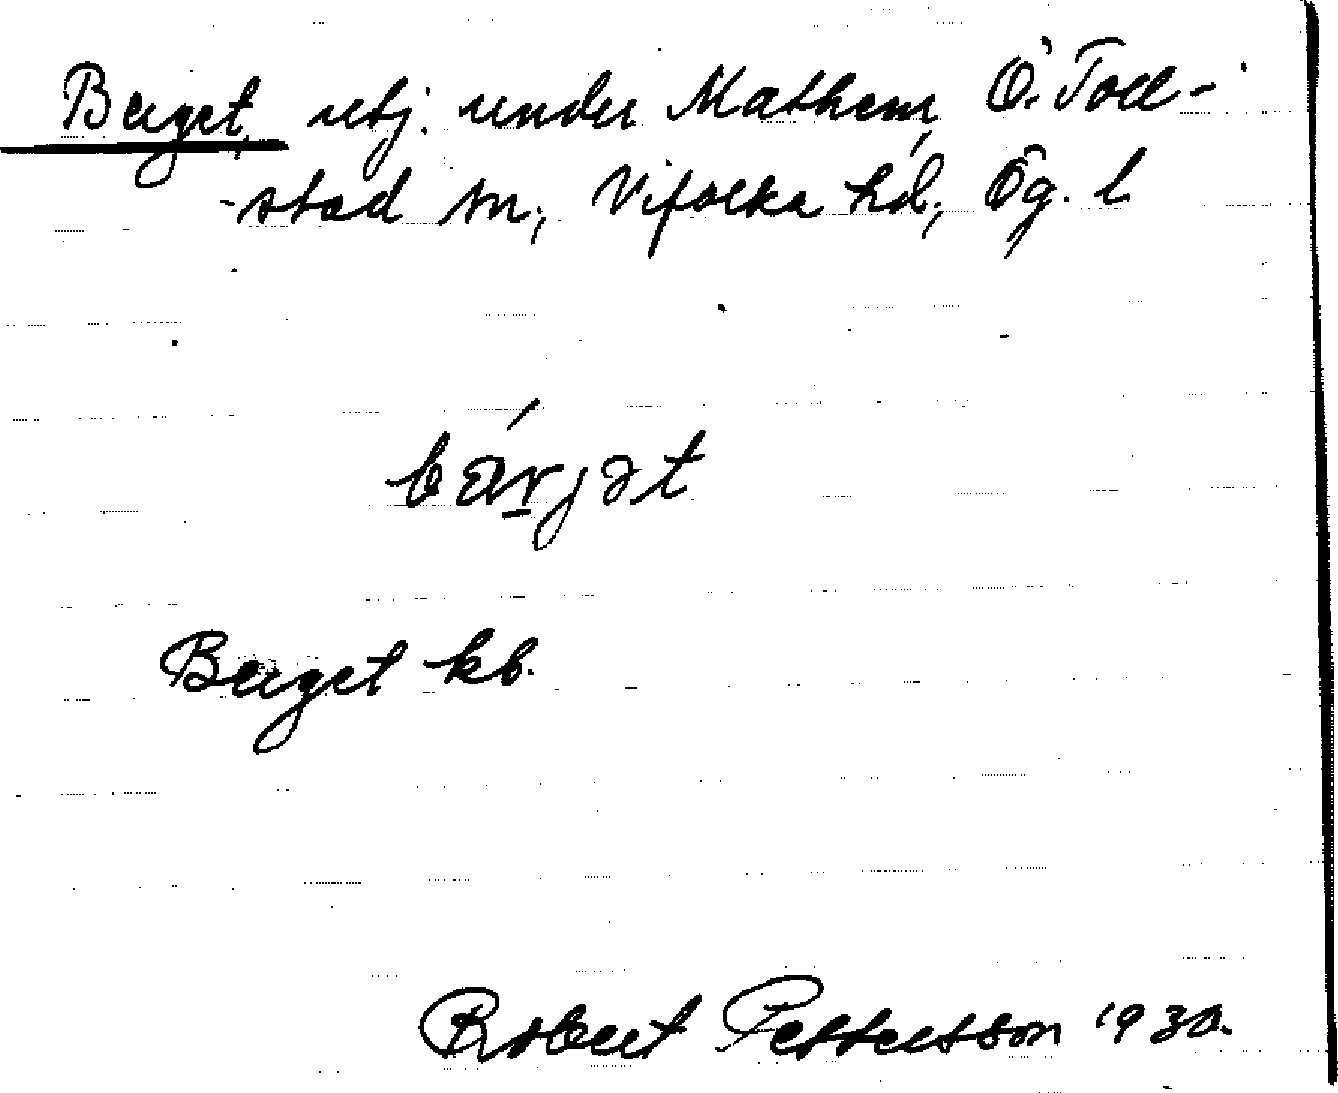 Berget, utj. under Mathem, Ö. Toll-
-stad sn, Vifolka hd, Ög. l
bä́rjət
Berget kb.
Robert Pettersson 1930.